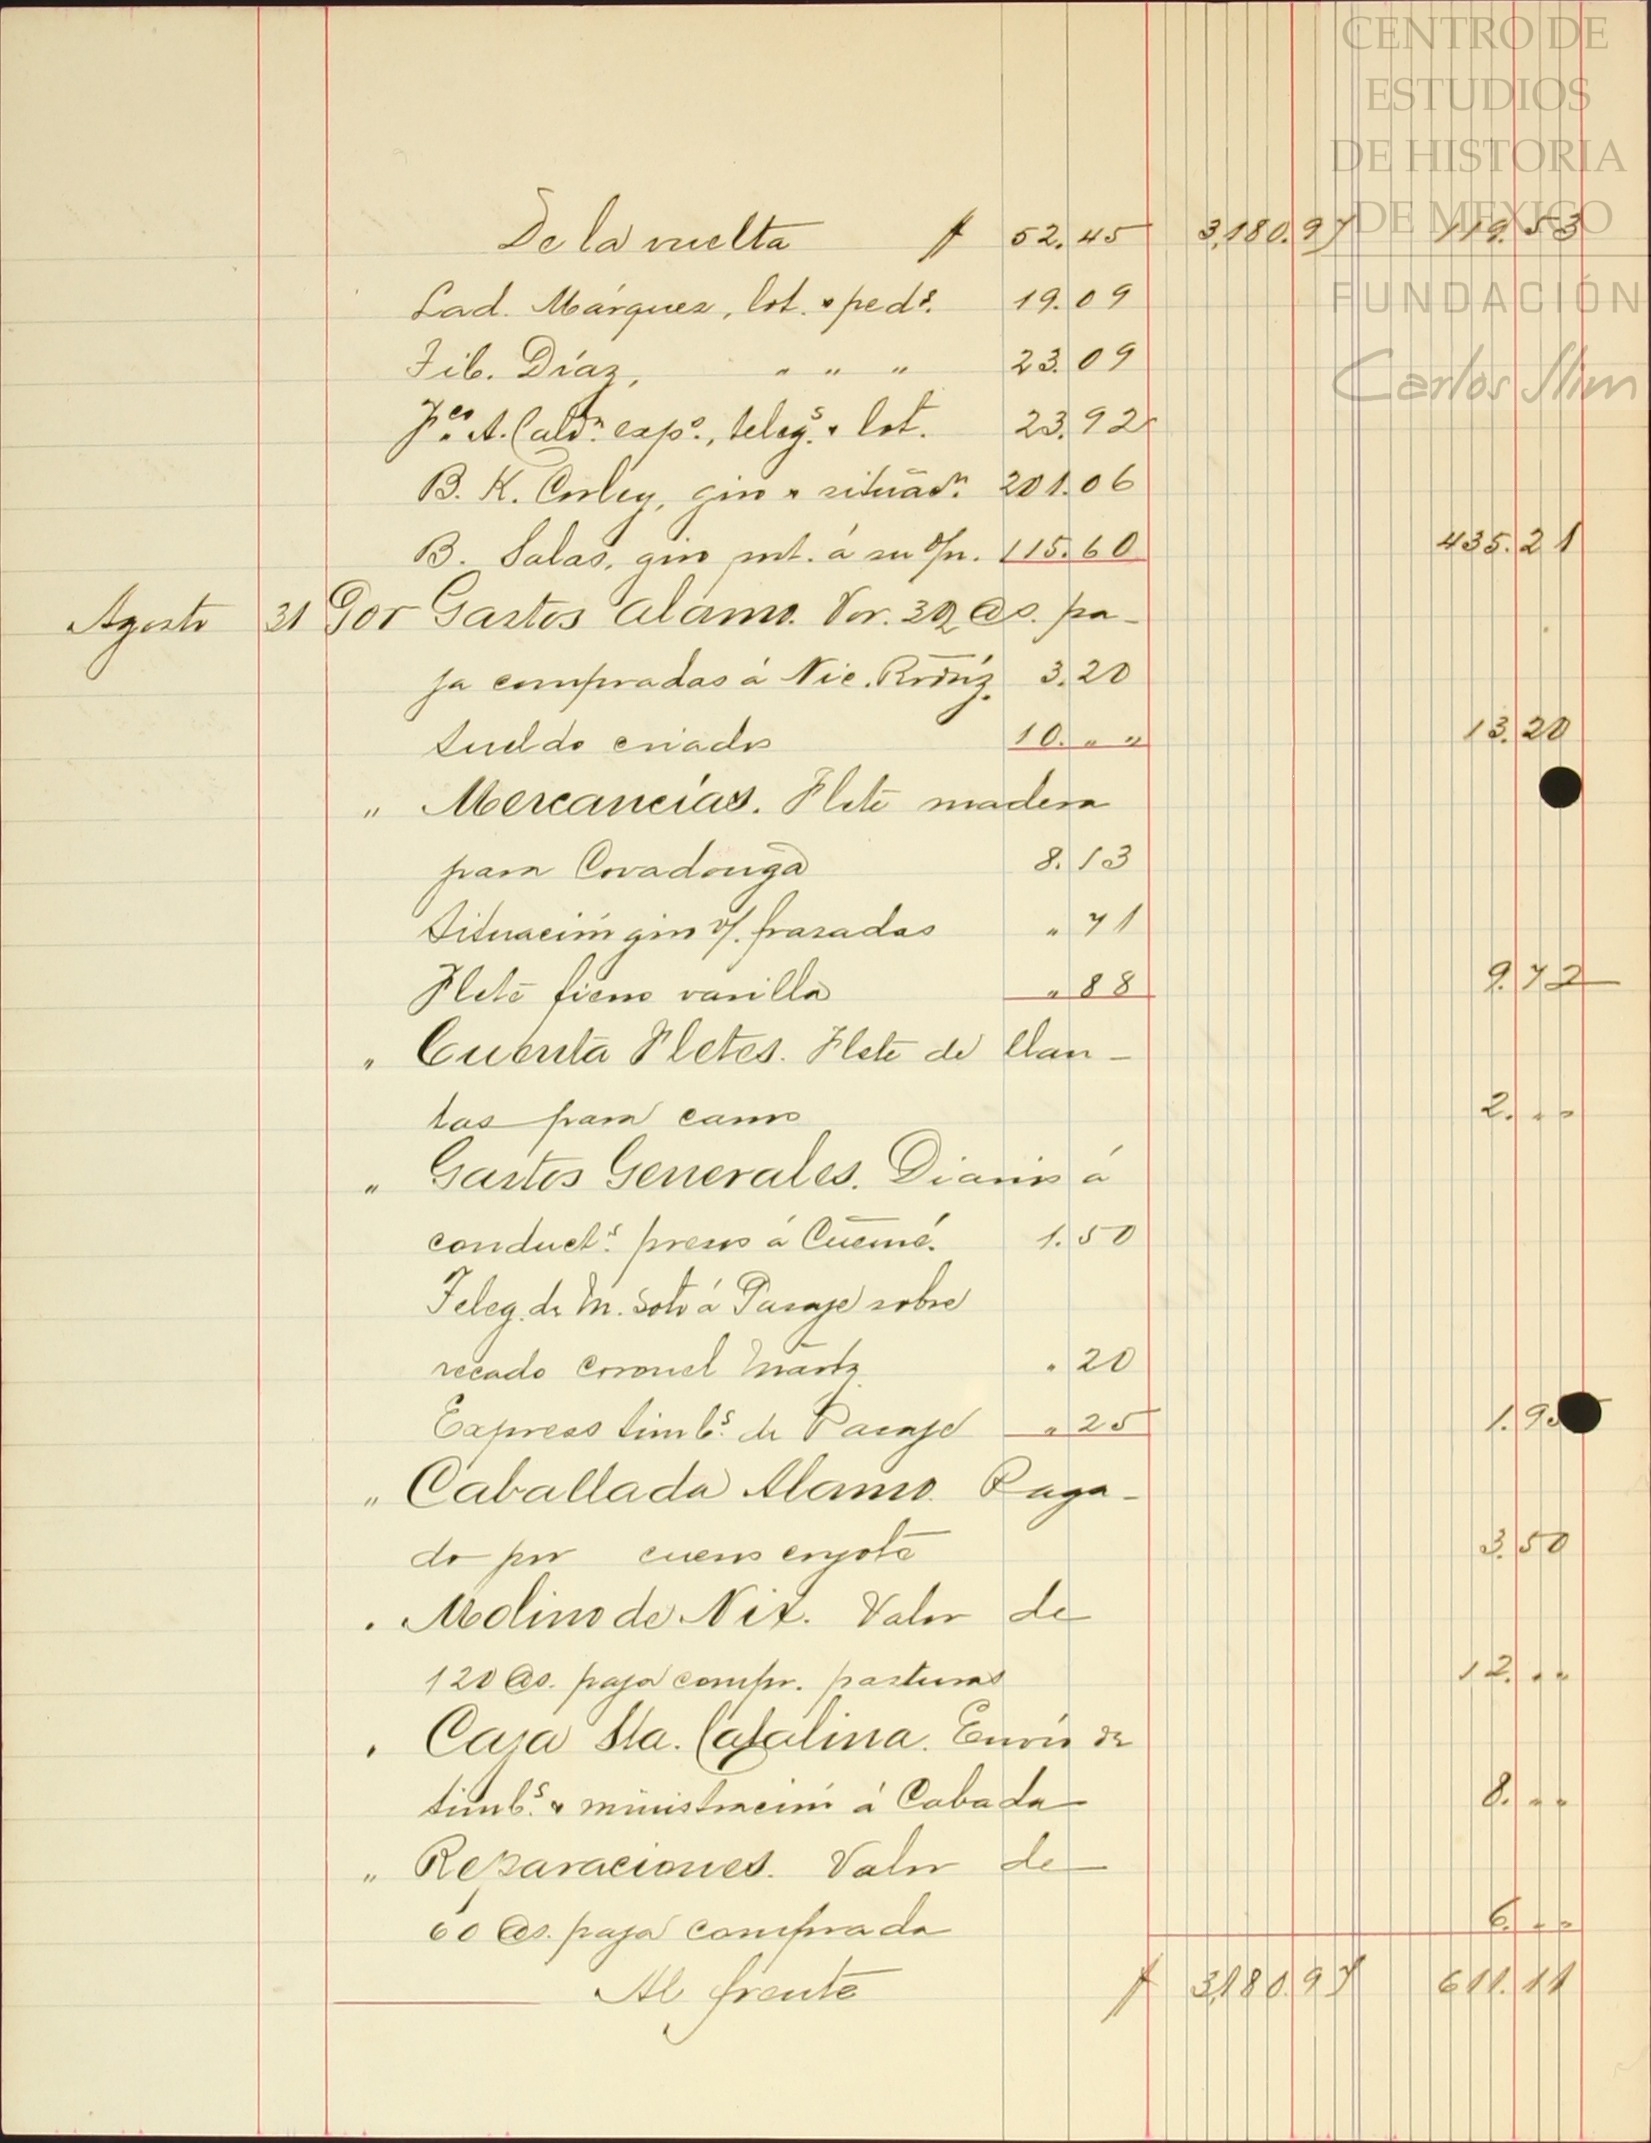 CENTRO DE
ESTUDIOS
DE HISTORIA
DE MEXICO
FUNDACIÓN
Carlos Slim
De la vuelta $ 52.45 3,180.97 119.53
Lad. Márquez, lot. y ped.s 19.09
Tib. Díaz, " " " 23.09
Fco. A. Caldn. exps., telegs. y lot. 23.92
B. K. Corley, giro y situacn. 201.06
B. Salas, giro mt. á su o/n. 115.60 435.21
Agosto 31 Por Gastos Alamo. Vor. 32 @s. pa-
ja compradas á Nic. Rodríguz. 3.20
Sueldo criado 10. " " 13.20
" Mercancías. Flete madera
para Covadonga 8.13
Situación giro v/. frazadas " 71
Flete fierro varilla " 88 9.72
" Cuenta Fletes. Flete de llan-
tas para carro 2. " "
" Gastos Generales. Diario á
conducts. presos á Cuencamé. 1.50
Teleg. de M. Soto á Pasaje sobre
recado Coronel Martz. " 20
Express timbs. de Pasaje " 25 1.95
" Caballada Alamo. Paga-
do por cueros coyote 3.50
" Molino de Nix. Valor de
120 @s. paja compr. pasturas 12. " "
" Caja Sta. Catalina. Envío de
timbs. y ministración á Cabada 8. " "
" Reparaciones. Valor de
60 @s. paja comprada 6. " "
Al frente $ 3,180.97 611.11